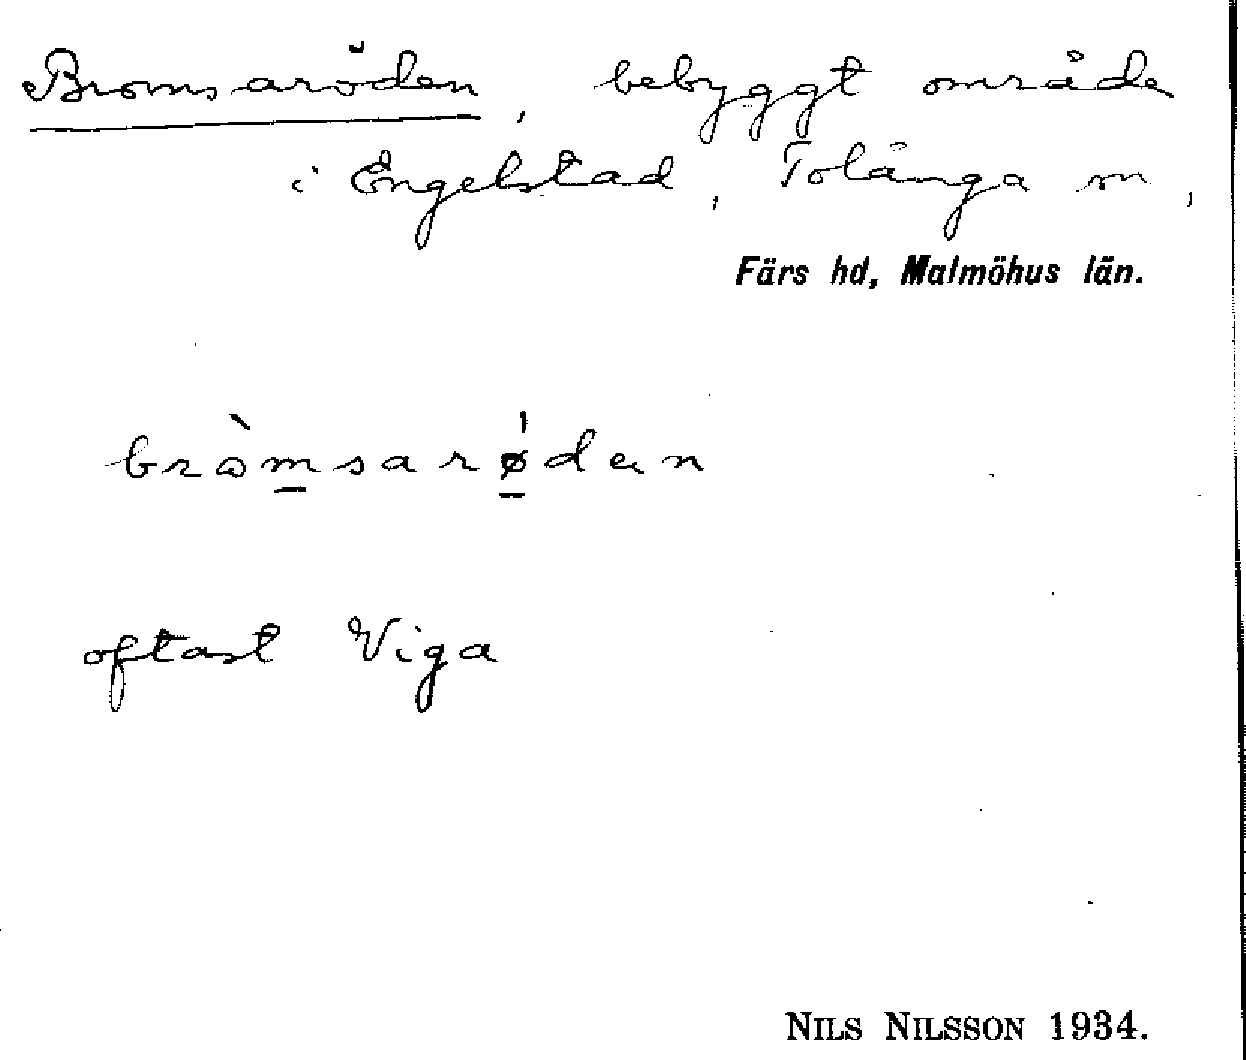 Bromsaröden, bebyggt område
i Engelstad, Tolånga sn,
Färs hd, Malmöhus län.
bròm̲sarǿ̲dan
oftast Viga
NILS NILSSON 1934.